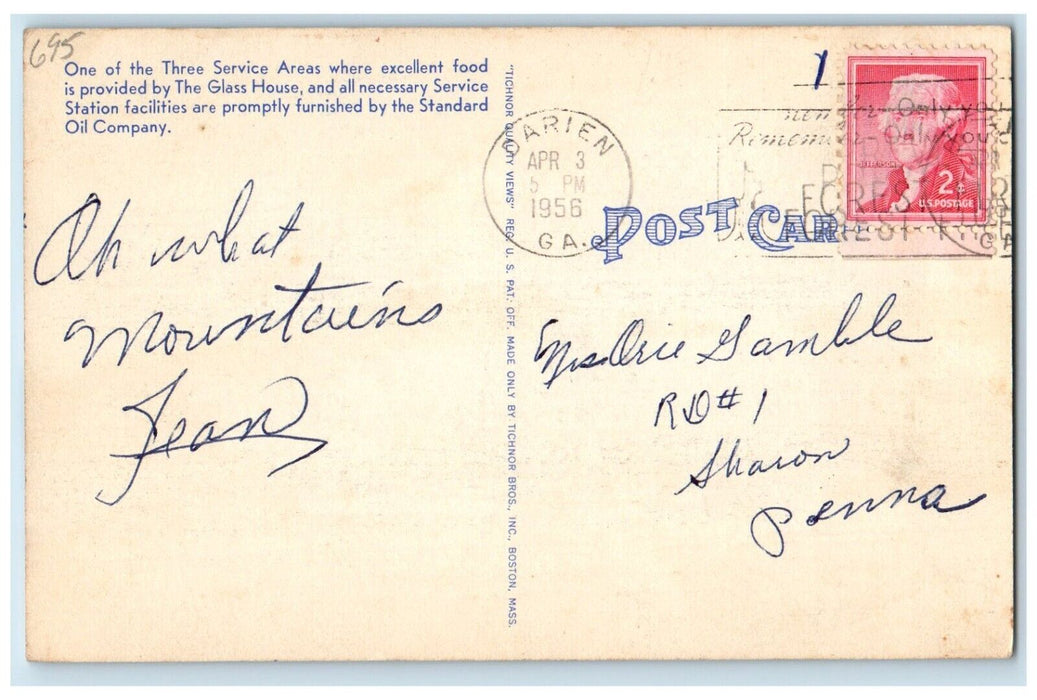 695
One of the Three Service Areas where excellent food
is provided by The Glass House, and all necessary Service
Station facilities are promptly furnished by the Standard
Oil Company.
Oh what
Mountains
Jean
"TICHNOR QUALITY VIEWS" REG. U. S. PAT. OFF. MADE ONLY BY TICHNOR BROS., INC., BOSTON, MASS.
DARIEN
APR 3
5 PM
1956
GA.
POST CARD
Remember- Only you
JEFFERSON
2¢
U.S. POSTAGE
Mrs Orie Gamble
RD#1
Sharon
Penna